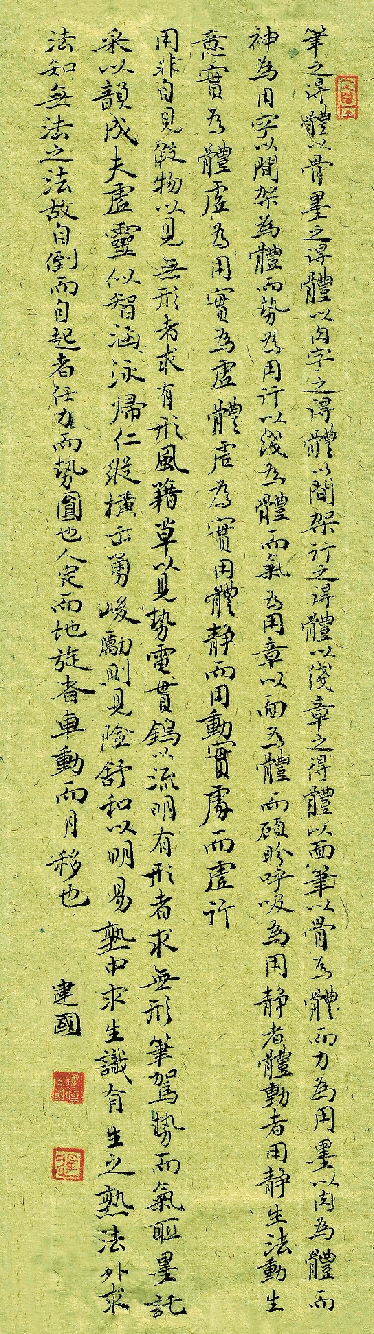 筆之得體以骨墨之得體以肉字之得體以間架行之得體以淺章之得體以面筆以骨為體而力為用墨以肉為體而
神為用字以間架為體而勢為用行以淺為體而氣為用章以面為體而顧盼呼吸為用靜者體動者用靜生法動生
意實為體虛為用實為虛體虛為實用體靜而用動實處而虛行
用非自見假物以見無形者求有形風藉草以見勢電貫鎢以流明有形者求無形筆駕勢而氣聯墨託
采以韻成夫虛靈似智涵泳歸仁縱橫出勇峻勵則見險舒和以明易熟中求生識有生之熟法外求
法如無法之法故自倒而自起者任力而勢圓也人定而地旋者車動而月移也
建國